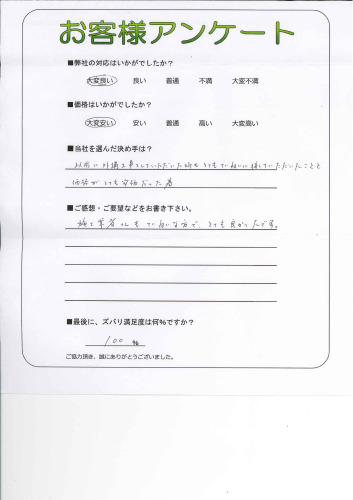 お客様アンケート
■弊社の対応はいかがでしたか?
大変良い 良い 普通 不満 大変不満
■価格はいかがでしたか?
大変安い 安い 普通 高い 大変高い
■当社を選んだ決め手は?
以前に外構工事をしていただいた時もとてもていねいに接していただいたことと
価格がとても安価だった為
■ご感想・ご要望などをお書き下さい。
施工業者さんもていねいな方で、とても良かったです。
■最後に、ズバリ満足度は何%ですか?
100 %
ご協力頂き、誠にありがとうございました。